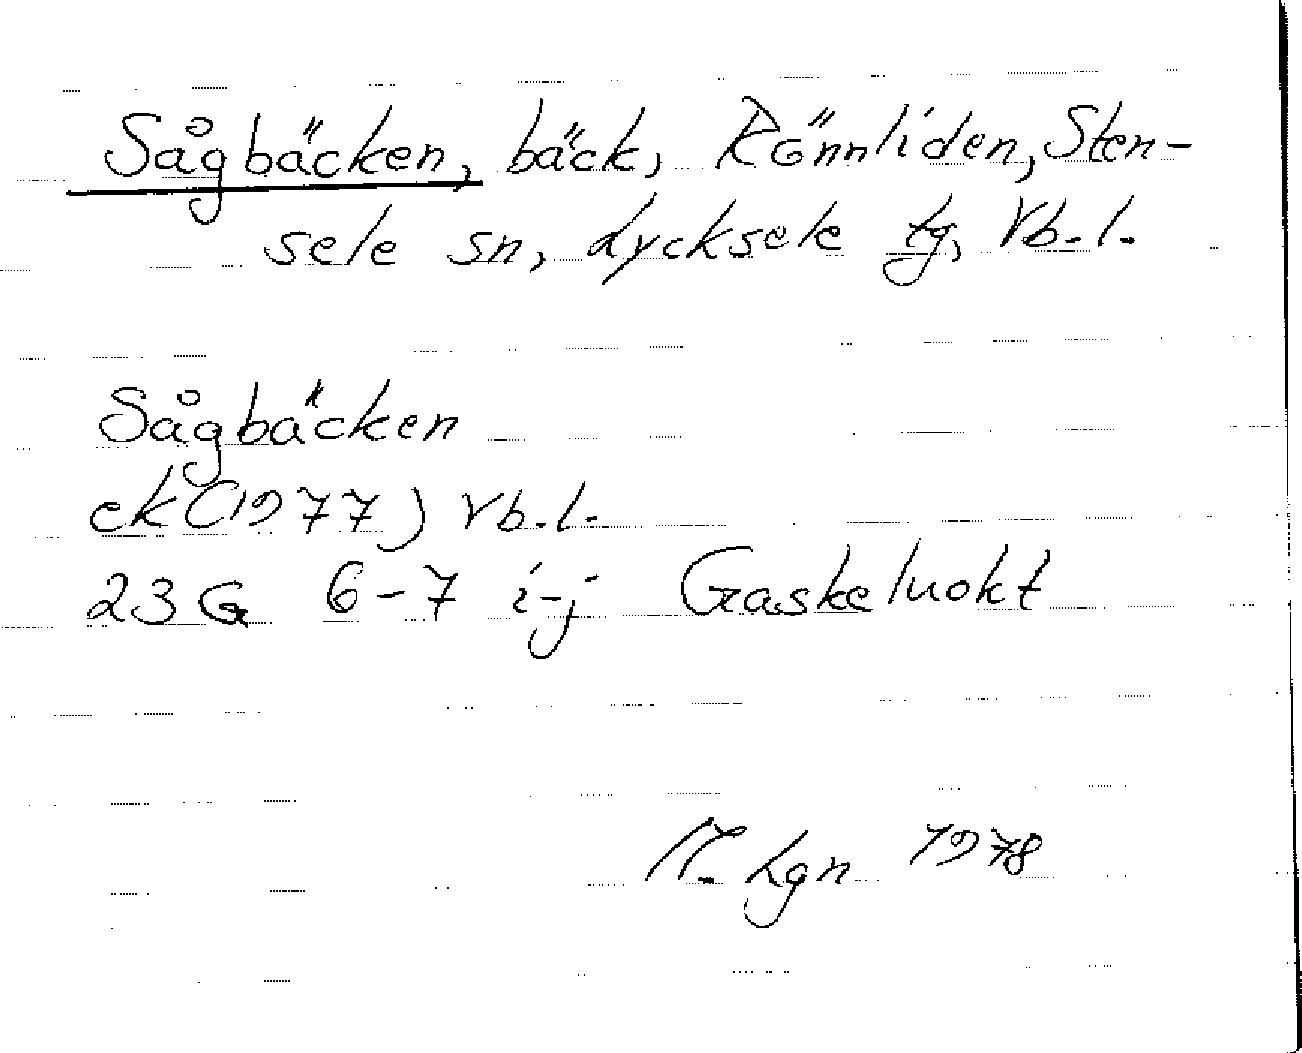 Sågbäcken, bäck, Rönnliden, Sten-
sele sn, Lycksele tg, Vb.l.
Sågbäcken
ek (1977) Vb.l.
23G 6-7 i-j Gaskeluokt
Lgn 1978